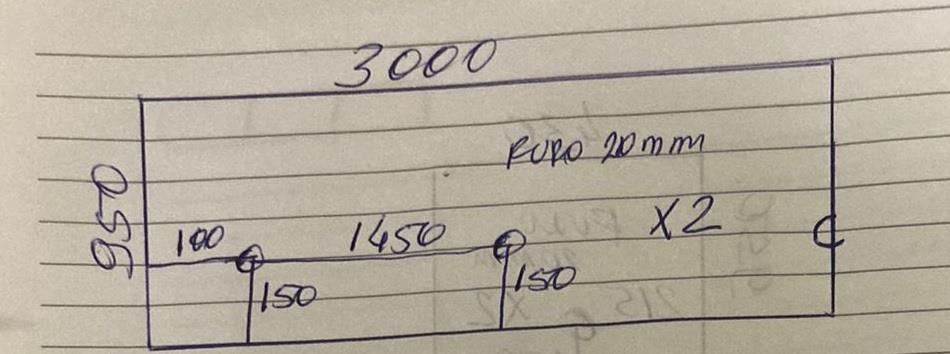 3000
FURO 20mm
950
100
1450
X2
150
150